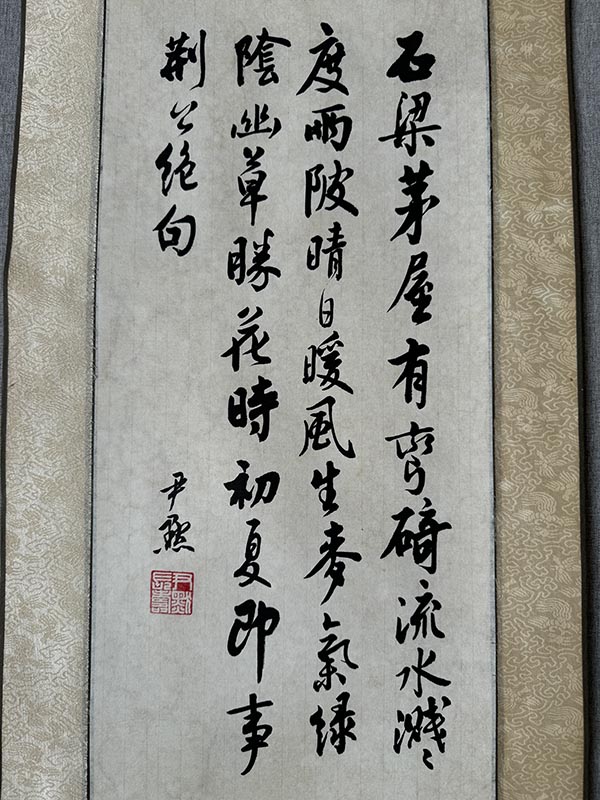 石梁茅屋有彎碕流水濺〻
度兩陂晴日暖風生麥氣綠
陰幽草勝花時初夏即事
荆公絕句
尹默